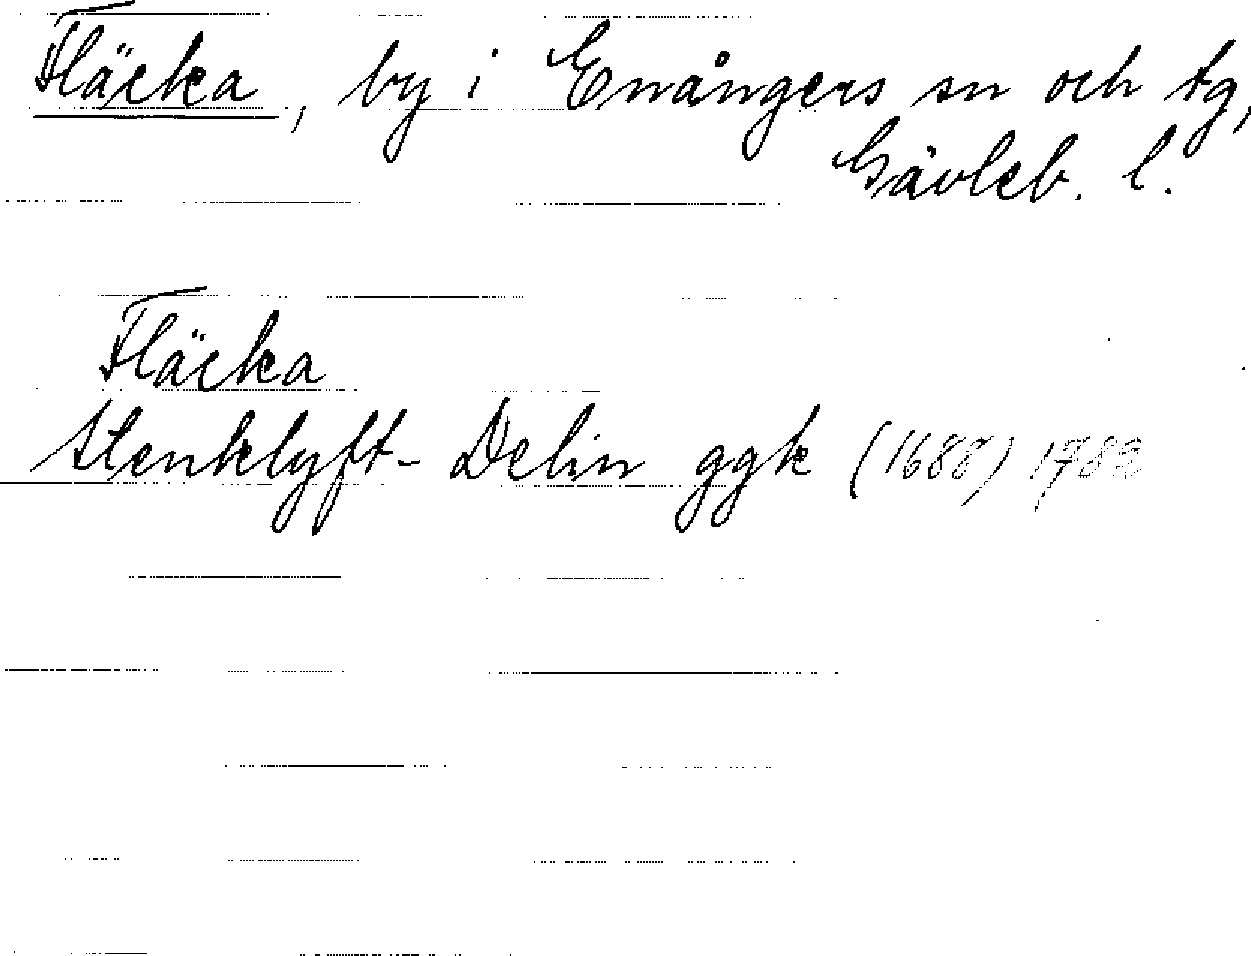 Fläcka, by i Enångers sn och tg,
Gävleb. l.
Fläcka
Stenklyft- Delin ggk (1688) 1782